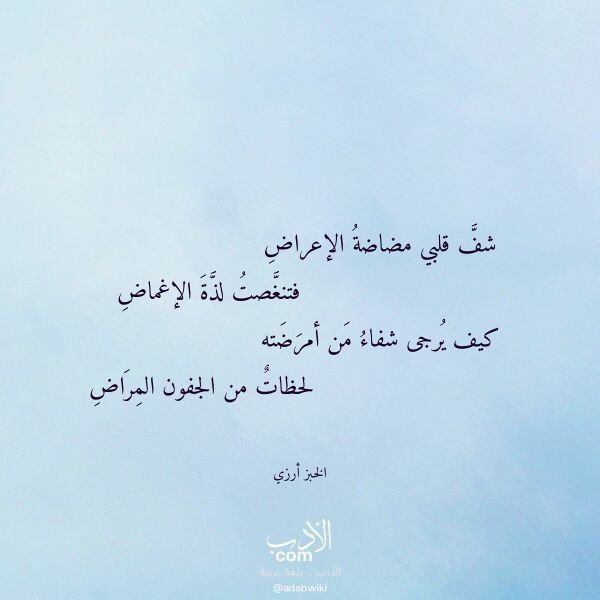 شفَّ قلبي مضاضةُ الإعراضِ
فتنغَّصتُ لذَّةَ الإغماضِ
كيف يُرجى شفاءُ مَن أمرَضَته
لحظاتٌ من الجفون المِرَاضِ
الخبز أرزي
الأدب
com
الأدب .. بلغة عربية
@adabwiki